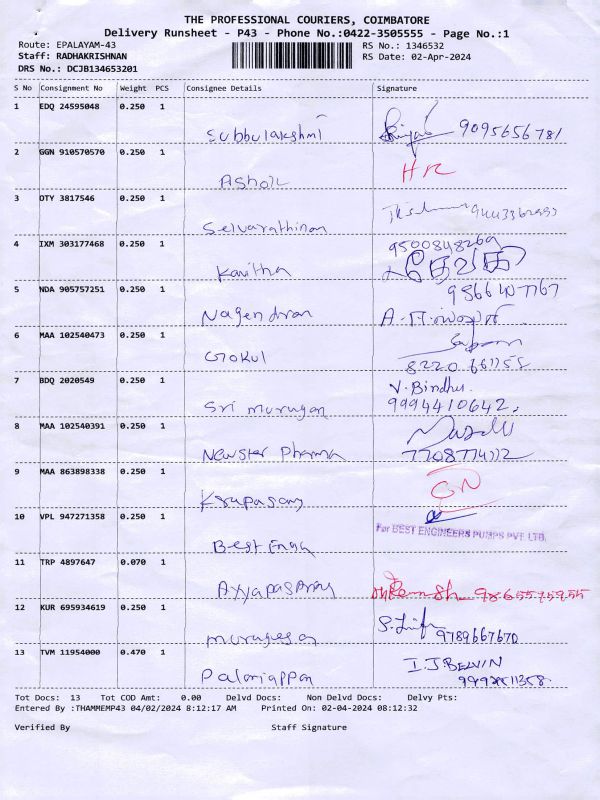 THE PROFESSIONAL COURIERS, COIMBATORE
Delivery Runsheet - P43 - Phone No.:0422-3505555 - Page No.:1
Route: EPALAYAM-43 RS No.: 1346532
Staff: RADHAKRISHNAN RS Date: 02-Apr-2024
DRS No.: DCJB134653201
S No Consignment No Weight PCS Consignee Details Signature
1 EDQ 24595048 0.250 1 Subbulakshmi 9095656781
2 GGN 910570570 0.250 1 Ashok HR
3 DTY 3817546 0.250 1 Selvarathinam
4 IXM 303177468 0.250 1 Kavitha 9500848269
5 NDA 905757251 0.250 1 Nagendran 9866407767
6 MAA 102540473 0.250 1 Gokul
7 BDQ 2020549 0.250 1 Sri murugan V. Bindhu.
9994410642.
8 MAA 102540391 0.250 1 Newster Pharma
9 MAA 863898338 0.250 1 Krupasang GN
10 VPL 947271358 0.250 1 Best Engg For BEST ENGINEERS PUMPS PVT LTD.
11 TRP 4897647 0.070 1
12 KUR 695934619 0.250 1 murugesan 9789667670
13 TVM 11954000 0.470 1 Palaniappan I.J.BELVIN
Tot Docs: 13 Tot COD Amt: 0.00 Delvd Docs: Non Delvd Docs: Delvy Pts:
Entered By :THAMMEMP43 04/02/2024 8:12:17 AM Printed On: 02-04-2024 08:12:32
Verified By Staff Signature